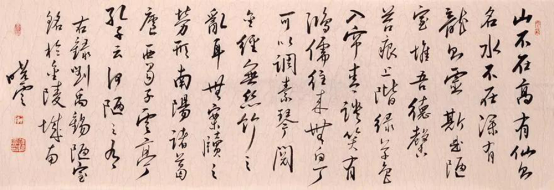 山不在高有仙則
名水不在深有
龍則靈斯是陋
室惟吾德馨
苔痕上階綠草色
入簾青談笑有
鴻儒往來無白丁
可以調素琴閱
金經無絲竹之
亂耳無案牘之
勞形南陽諸葛
廬西蜀子雲亭
孔子云何陋之有
右錄劉禹錫陋室
銘於金陵城南